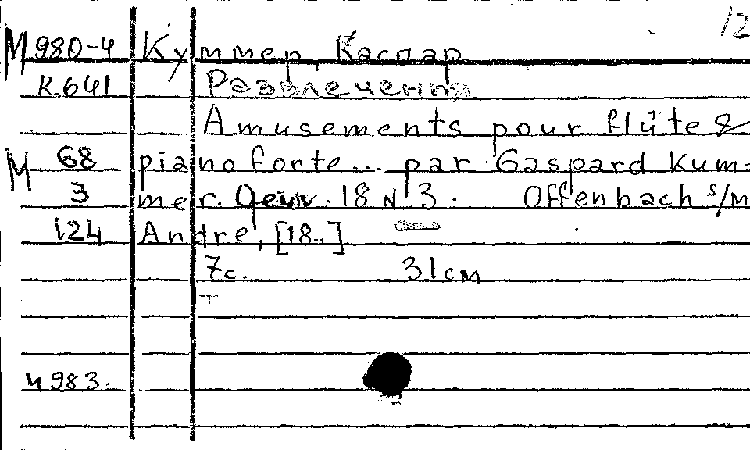 12
М 980-4 Куммер, Каспар
К 641 Развлечения
Amusements pour flûte &
М 68 pianoforte... par Gaspard Kum-
3 mer. Oeuv. 18 N 3. Offenbach s/m
124 André, [18..]
7с. 31см
Ч 983.